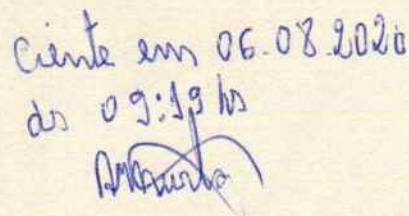 Ciente em 06.08.2020
às 09:19 hs